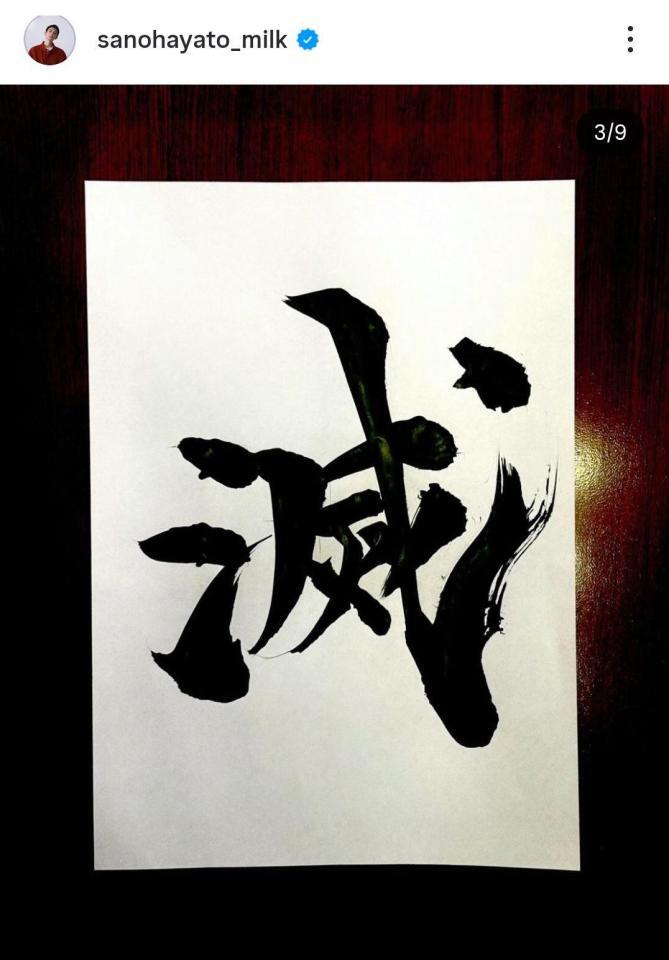 sanohayato_milk
3/9
滅